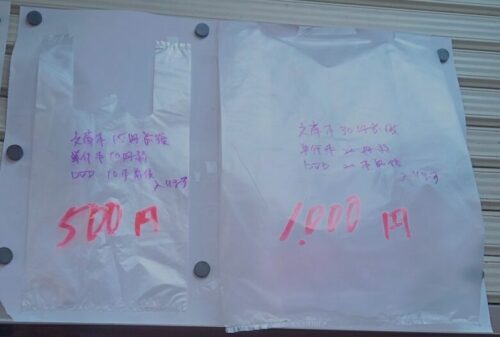 文庫本 15冊前後
単行本 10冊前後
DVD 10本前後
入ります
500円
文庫本 30冊前後
単行本 20冊前後
DVD 20本前後
入ります
1,000円